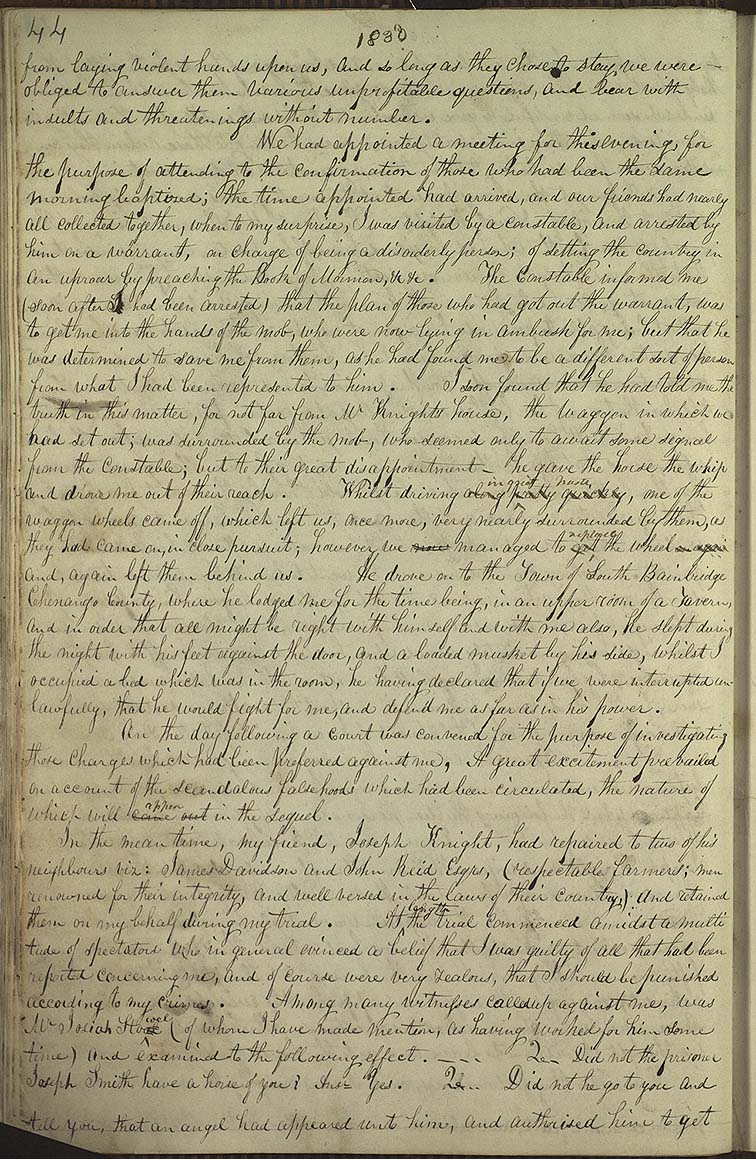 44
1830
from laying violent hands upon us, and so long as they chose to stay, we were
obliged to answer them various unprofitable questions, and bear with
insults and threatenings without number.
We had appointed a meeting for this evening, for
the purpose of attending to the confirmation of those who had been the same
morning baptized; the time appointed had arrived, and our friends had nearly
all collected together, when to my surprise, I was visited by a constable, and arrested by
him on a warrant, on charge of being a disorderly person; of setting the country in
an uproar by preaching the Book of Mormon, &c &c. The Constable informed me
(soon after I had been arrested) that the plan of those who had got out the warrant, was
to get me into the hands of the mob, who were now lying in ambush for me; but that he
was determined to save me from them, as he had found me to be a different sort of person
from what I had been represented to him. I soon found that he had told me the
truth in this matter, for not far from Mr Knights house, the waggon in which we
had set out; was surrounded by the mob, who seemed only to await some signal
from the Constable; but to their great disappointment - he gave the horse the whip
and drove me out of their reach. Whilst driving along pretty quickly in great haste, one of the
waggon wheels came off, which left us, once more, very nearly surrounded by them, as
they had came on, in close pursuit; however we managed to get replace the wheel on again
and, again left them behind us. He drove on to the Town of South Bainbridge
Chenango County, where he lodged me for the time being, in an upper room of a Tavern,
and in order that all might be right with himself and with me also, he slept during
the night with his feet against the door, and a loaded musket by his side, whilst I
occupied a bed which was in the room, he having declared that if we were interrupted un-
lawfully, that he would fight for me, and defend me as far as in his power.
On the day following a Court was convened for the purpose of investigating
those charges which had been preferred against me. A great excitement prevailed
on account of the scandalous falsehoods which had been circulated, the nature of
which will come out appear in the sequel.
In the mean time, my friend, Joseph Knight, had repaired to two of his
neighbours viz: James Davidson and John Reid Esqrs, (respectable farmers; men
renowned for their integrity, and well versed in the laws of their country;) and retained
them on my behalf during my trial. At length the trial commenced amidst a multi
tude of spectators who in general evinced a belief that I was guilty of all that had been
reported concerning me, and of course were very zealous, that I should be punished
according to my crimes. Among many witnesses called up against me, was
Mr Josiah Stowel (of whom I have made mention, as having worked for him some
time) and examined to the following effect. --- Did not the prisoner
Joseph Smith have a horse of you? Ansr Yes. Did not he go to you and
tell you, that an angel had appeared unto him, and authorised him to get